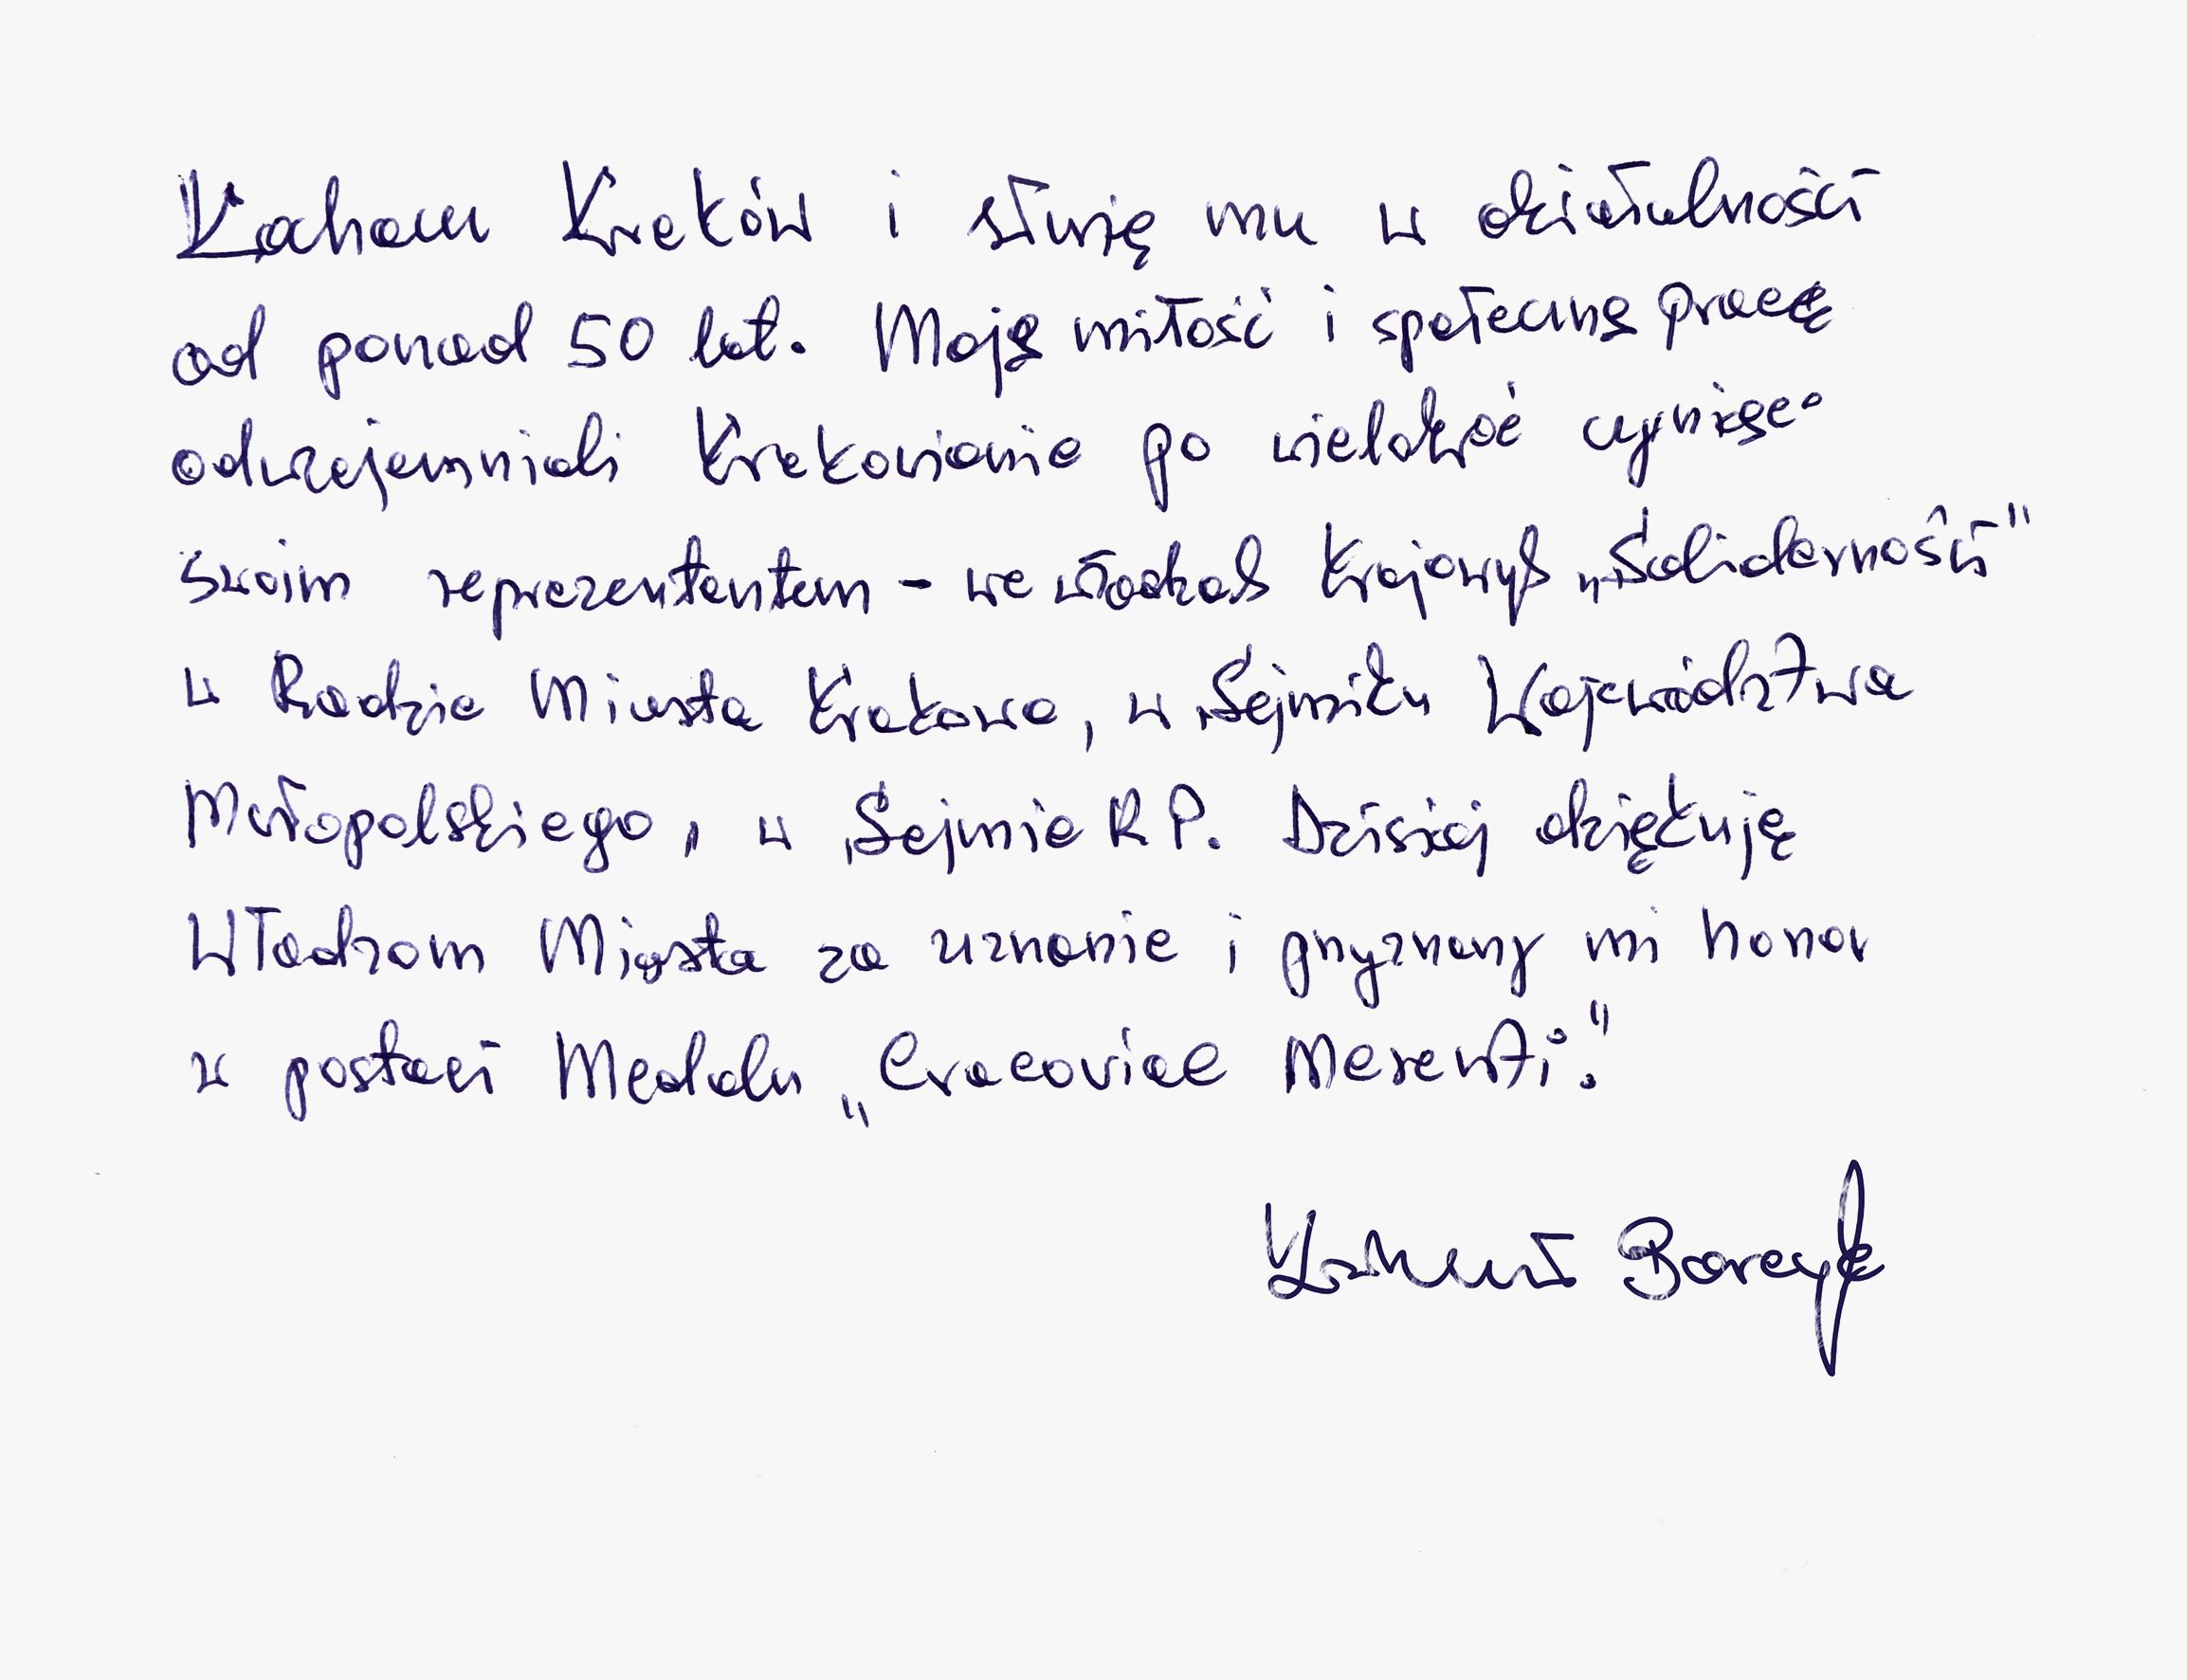 Kocham Kraków i służę mu w działalności
od ponad 50 lat. Moją miłość i społeczną pracę
odwzajemniali Krakowianie po wielokroć czyniąc
swoim reprezentantem - we władzach Krajowych „Solidarności"
w Radzie Miasta Krakowa, w Sejmiku Województwa
Małopolskiego, w Sejmie RP. Dzisiaj dziękuję
Władzom Miasta za uznanie i przyznany mi honor
w postaci Medalu „Cracoviae Merenti."
Barczyk